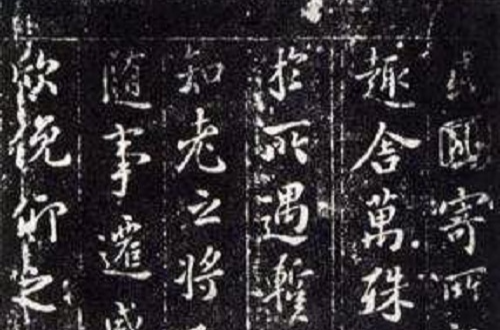 因寄所
趣舍萬殊
於所遇蹔
知老之將
隨事遷感
欣俛仰之